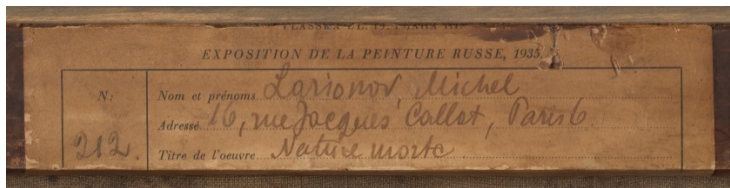 EXPOSITION DE LA PEINTURE RUSSE, 1935.
No:
Nom et prénoms Larionov, Michel
Adresse 16, rue Jacques Callot, Paris 6
212.
Titre de l'oeuvre Nature morte